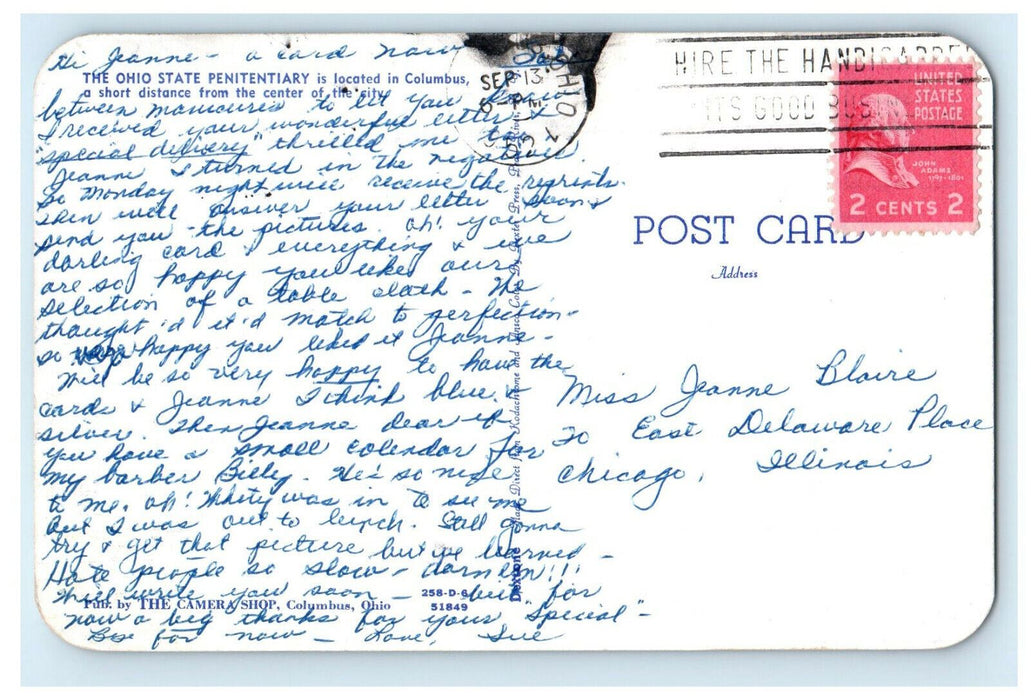 Hi Jeanne - a card now
THE OHIO STATE PENITENTIARY is located in Columbus,
a short distance from the center of the city.
between manicures to let you know
I received your wonderful letter &
"special delivery" thrilled me too
Jeanne I turned in the negatives
so Monday night we'll receive the reprints.
Then we'll answer your letter soon &
send you the pictures. Oh! your
darling card & everything & we
are so happy you likes our
selection of a table cloth - We
thought 'd it'd match to perfection -
so happy you liked it Jeanne -
Will be so very happy to have the
cards & Jeanne I think blue &
silver. Then Jeanne dear if
you have a small calendar for
my barber Billy. He's so nice
to me. Oh! Whity was in to see me
but I was out to lunch. Still gonna
try & get that picture but we learned -
Hate people so slow - darn em!!!
Will write you soon - but for
Pub. by THE CAMERA SHOP, Columbus, Ohio
now a big thanks for your "Special" -
Bye for now - Love, Sue
258-D-6
51849
Dextone
Made Direct from Kodachrome and Ansco Color By Dexter Press,
SEP 13
PM
OHIO
HIRE THE HANDICAPPED
ITS GOOD BUS
UNITED
STATES
POSTAGE
JOHN
ADAMS
1797-1801
2 CENTS 2
POST CARD
Address
Miss Jeanne Blaire
20 East Delaware Place
Chicago, Illinois